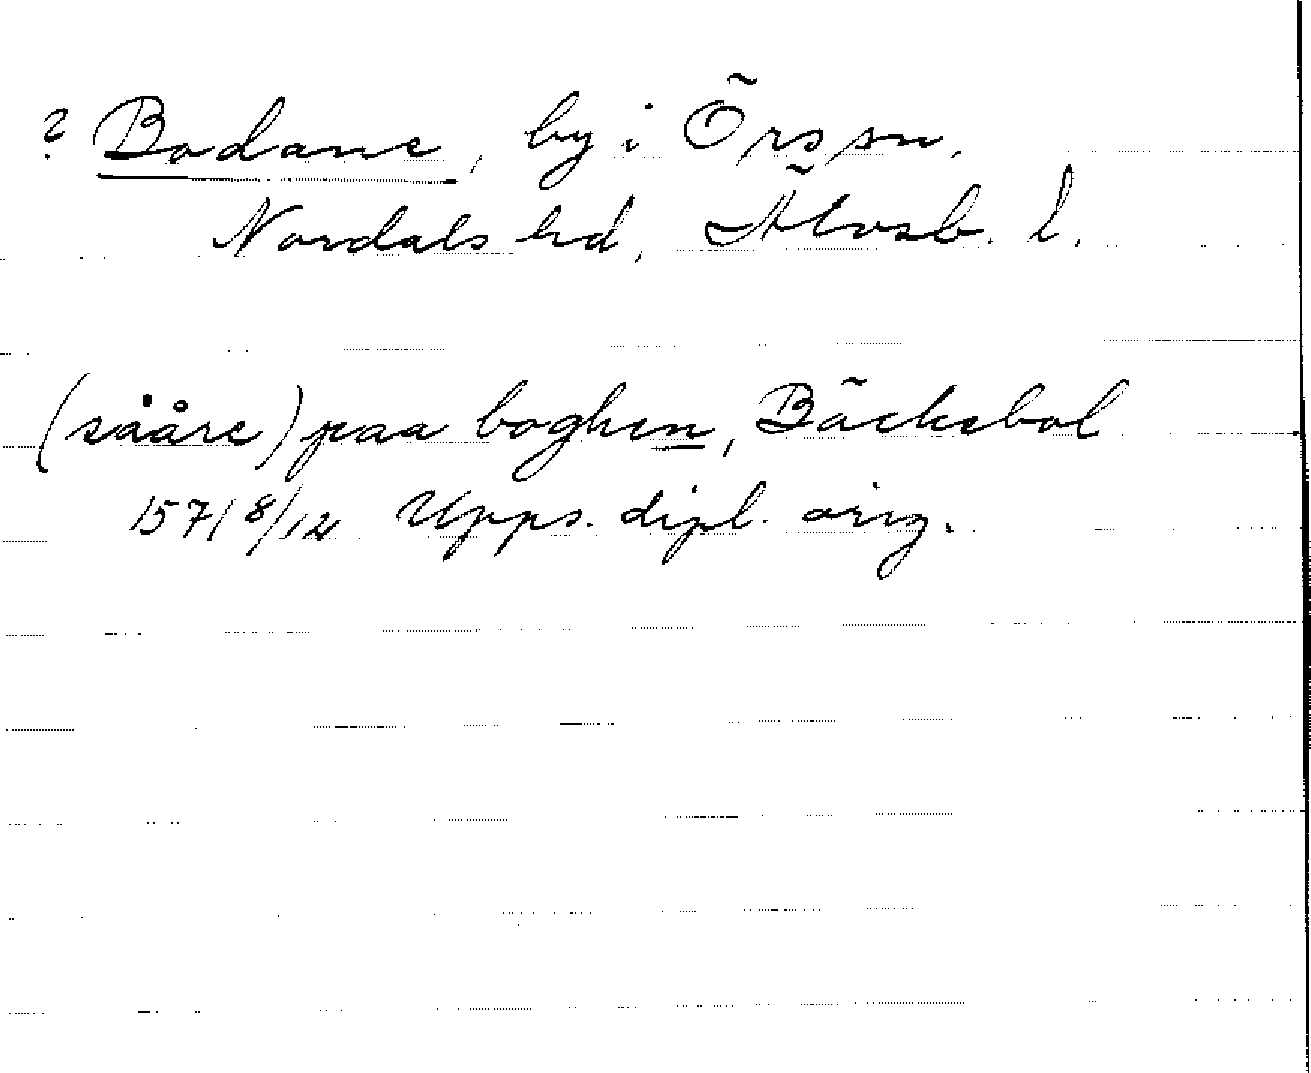 ? Bodane, by i Örs sn,
Nordals hd, Älvsb. l.
(sååre) paa boghen, Bäckebol
1571 8/12 Upps. dipl. orig.